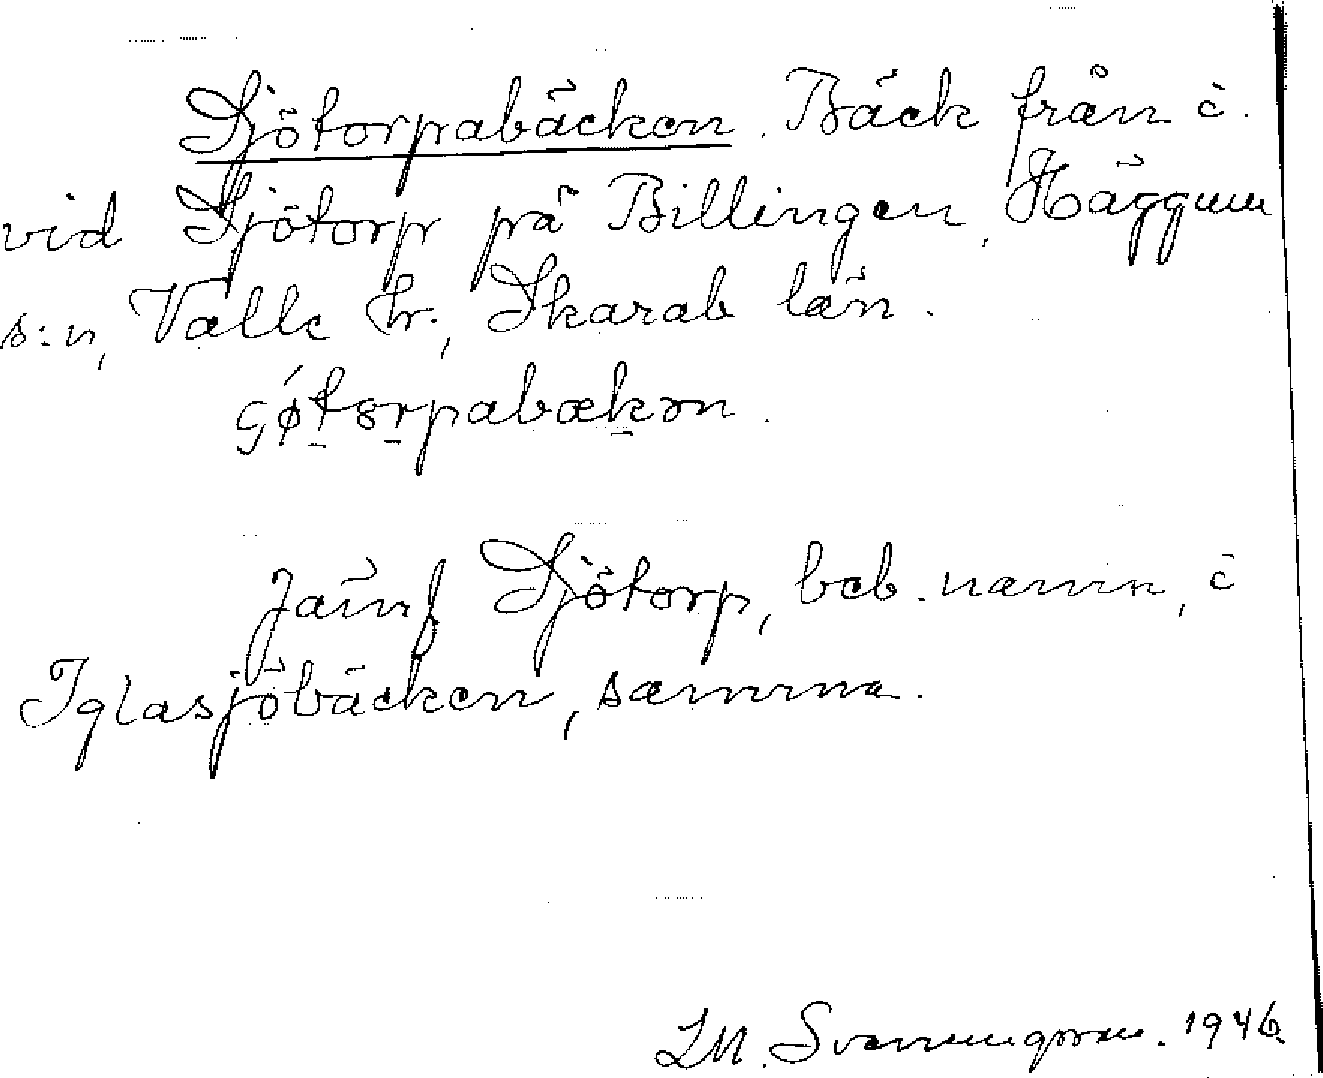 Sjötorpabäcken. Bäck från ö.
vid Sjötorp på Billingen, Häggum
s:n, Valle hr., Skarab län.
Jämf Sjötorp, beb.namn, ö
Iglasjöbäcken, samma.
LM. Svenungsson. 1946.